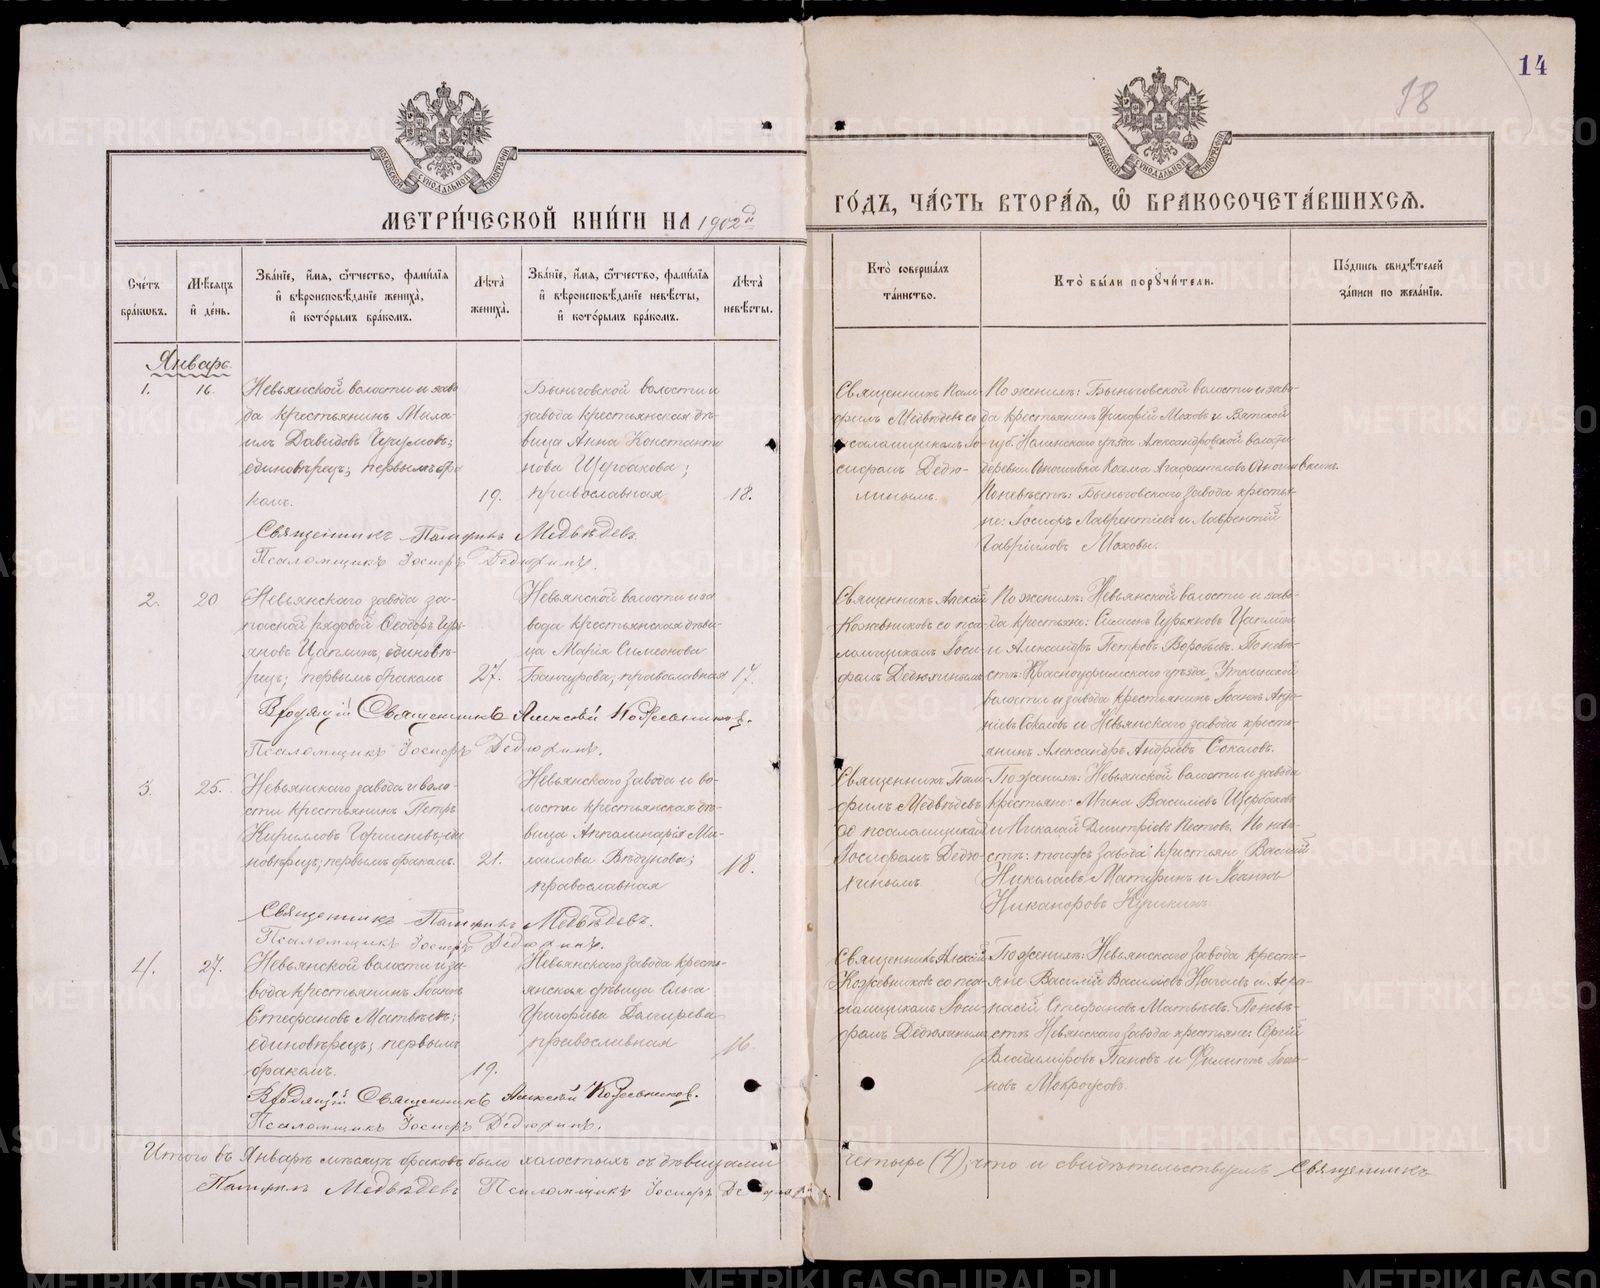 14
18
МЕТРИ́ЧЕСКОЙ КНИ́ГИ НА 1902й
ГО́ДЪ, ЧА́СТЬ ВТОРА́Я, Ѡ҆ БРАКОСОЧЕТА́ВШИХСЯ.
Сче́тъ бра́кѡвъ.
Мѣ́сяцъ и҆ де́нь.
Зва́нїе, и҆́мя, ѻ҆́тчество, фами́лїя
и҆ вѣроисповѣ́данїе жениха̀,
и҆ кото́рымъ бра́комъ.
Лѣта̀ жениха̀.
Зва́нїе, и҆́мя, ѻ҆́тчество, фами́лїя
и҆ вѣроисповѣ́данїе невѣ́сты,
и҆ кото́рымъ бра́комъ.
Лѣта̀ невѣ́сты.
Кто̀ соверша́лъ
та́инство.
Кто̀ бы́ли поручи́тели.
По́дпись свидѣ́телей
за́писи по жела́нїю.
Январь
1.
16.
Невьянской волости и заво
да крестьянинъ Миха-
илъ Давидовъ
единовѣрецъ; первымъ бра
комъ.
19.
Быньговской волости и
завода крестьянская дѣ-
вица Анна Константи
нова Щербакова;
православная
18.
Священникъ Пам-
филъ Медвѣдевъ со
псаломщикомъ Іо-
сифомъ Дедю-
хинымъ.
По женихѣ: Быньговской волости и заво-
да крестьянинъ Григорій Моховъ и Вятской
губ. Нолинскаго уѣзда Александровской волости
деревни Косма
По невѣстѣ: Быньговскаго завода крестья-
не: Іосифъ Лаврентіевъ и Лаврентій
Гавріиловъ Моховы.
Священникъ Памфилъ Медвѣдевъ.
Псаломщикъ Іосифъ Дедюхинъ.
2.
20
Невьянскаго завода за-
пасной рядовой Ѳеодоръ Гурь-
яновъ Цаплинъ, единовѣ-
рецъ; первымъ бракомъ
27.
Невьянской волости и за
вода крестьянская дѣви-
ца Марія Симеонова
православная
17.
Священникъ Алексій
Кожевниковъ со пса-
ломщикомъ Іоси-
фомъ Дедюхинымъ
По женихѣ: Невьянской волости и заво-
да крестьяне: Симеонъ Гурьяновъ Цаплинъ
и Александръ Петровъ Воробьевъ. По невѣ-
стѣ: Красноуфимскаго уѣзда, Уткинской
волости и завода крестьянинъ Іоаннъ Анд-
Соколовъ и Невьянскаго завода кресть-
янинъ Александръ Андреевъ Соколовъ.
Входящій Священникъ Алексѣй Кожевниковъ.
Псаломщикъ Іосифъ Дедюхинъ.
3.
25.
Невьянскаго завода и воло-
сти крестьянинъ Петръ
Кирилловъ еди
новѣрецъ; первымъ бракомъ.
21.
Невьянскаго завода и во-
лости крестьянская дѣ-
вица Апполинарія
православная
18.
Священникъ Пам-
филъ Медвѣдевъ
со псаломщикомъ
Іосифомъ Дедю-
хинымъ
По женихѣ: Невьянской волости и завода
крестьяне: Мина Василіевъ Щербаковъ
и Николай Димитріевъ Пестовъ. По невѣ-
стѣ: тогожъ завода крестьяне Василій
Николаевъ Матуринъ и Іоаннъ
Никаноровъ
Священникъ Памфилъ Медвѣдевъ.
Псаломщикъ Іосифъ Дедюхинъ.
4.
27.
Невьянской волости и за-
вода крестьянинъ Іоаннъ
Стефановъ Матвѣевъ;
единовѣрецъ; первымъ
бракомъ.
19.
Невьянскаго завода кресть-
янская дѣвица Ольга
Григорьева
православная
16.
Священникъ Алексій
Кожевниковъ со пса-
ломщикомъ Іоси-
фомъ Дедюхинымъ
По женихѣ: Невьянскаго завода кресть-
яне Василій Василіевъ и Аѳа-
насій Стефановъ Матвѣевъ. По невѣ-
стѣ Невьянскаго завода крестьяне: Сергій
Владиміровъ Пановъ и Филиппъ Іоан-
новъ Мокроусовъ.
Входящій Священникъ Алексѣй Кожевниковъ.
Псаломщикъ Іосифъ Дедюхинъ.
Итого въ Январѣ мѣсяцѣ браковъ было холостыхъ съ дѣвицами четыре (4), что и свидѣтельствуемъ Священникъ
Памфилъ Медвѣдевъ Псаломщикъ Іосифъ Дедюхинъ.
METRIKI.GASO-URAL.RU